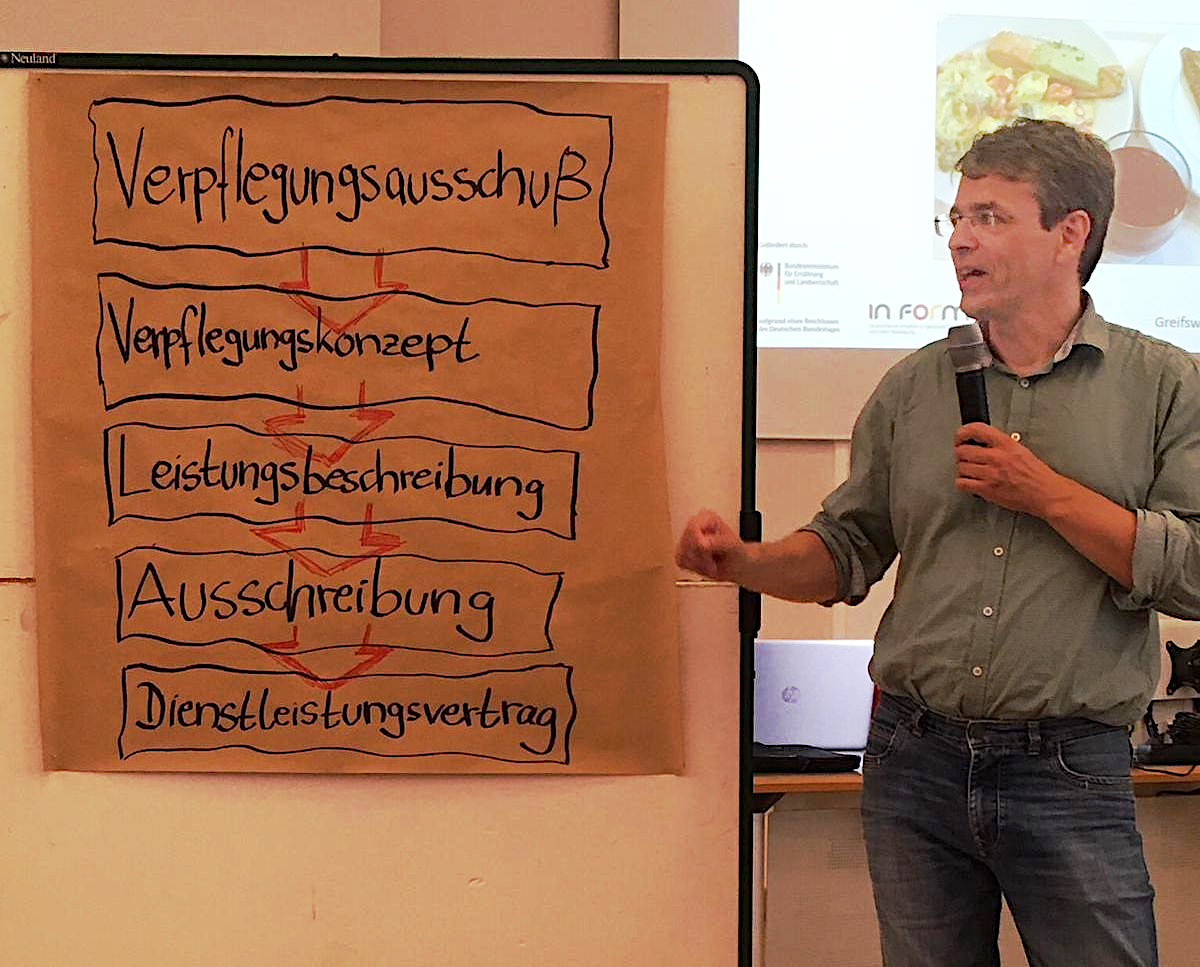 Neuland
Verpflegungsausschuß
Verpflegungskonzept
Leistungsbeschreibung
Ausschreibung
Dienstleistungsvertrag
Gefördert durch:
Bundesministerium
für Ernährung
und Landwirtschaft
aufgrund eines Beschlusses
des Deutschen Bundestages
IN FORM
Greifsw
hp